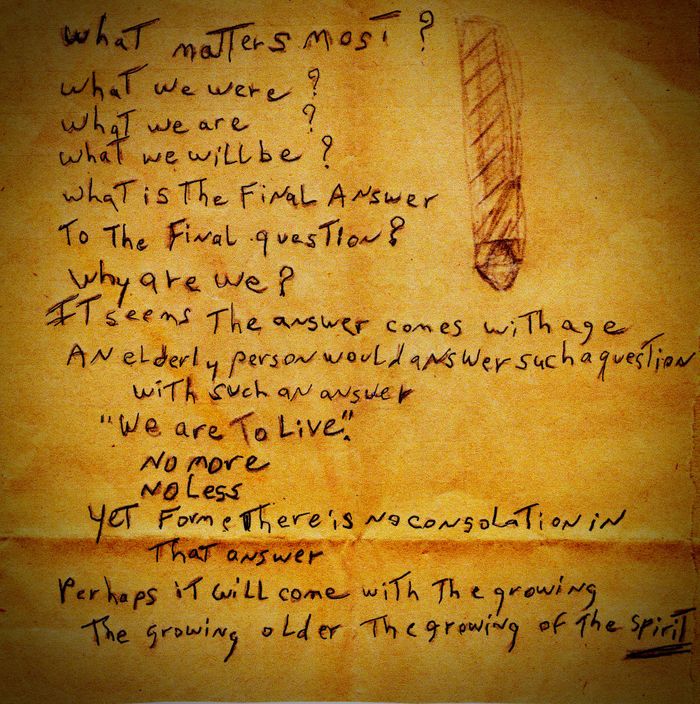 what matters most ?
what we were ?
what we are ?
what we will be ?
what is The Final Answer
To The Final question?
why are we?
IT seems The answer comes with age
An elderly person would answer such a question
with such an answer
"We are To Live".
No more
No Less
Yet For me There is no consolation in
That answer
Perhaps it will come with The growing
The growing older The growing of The spirit